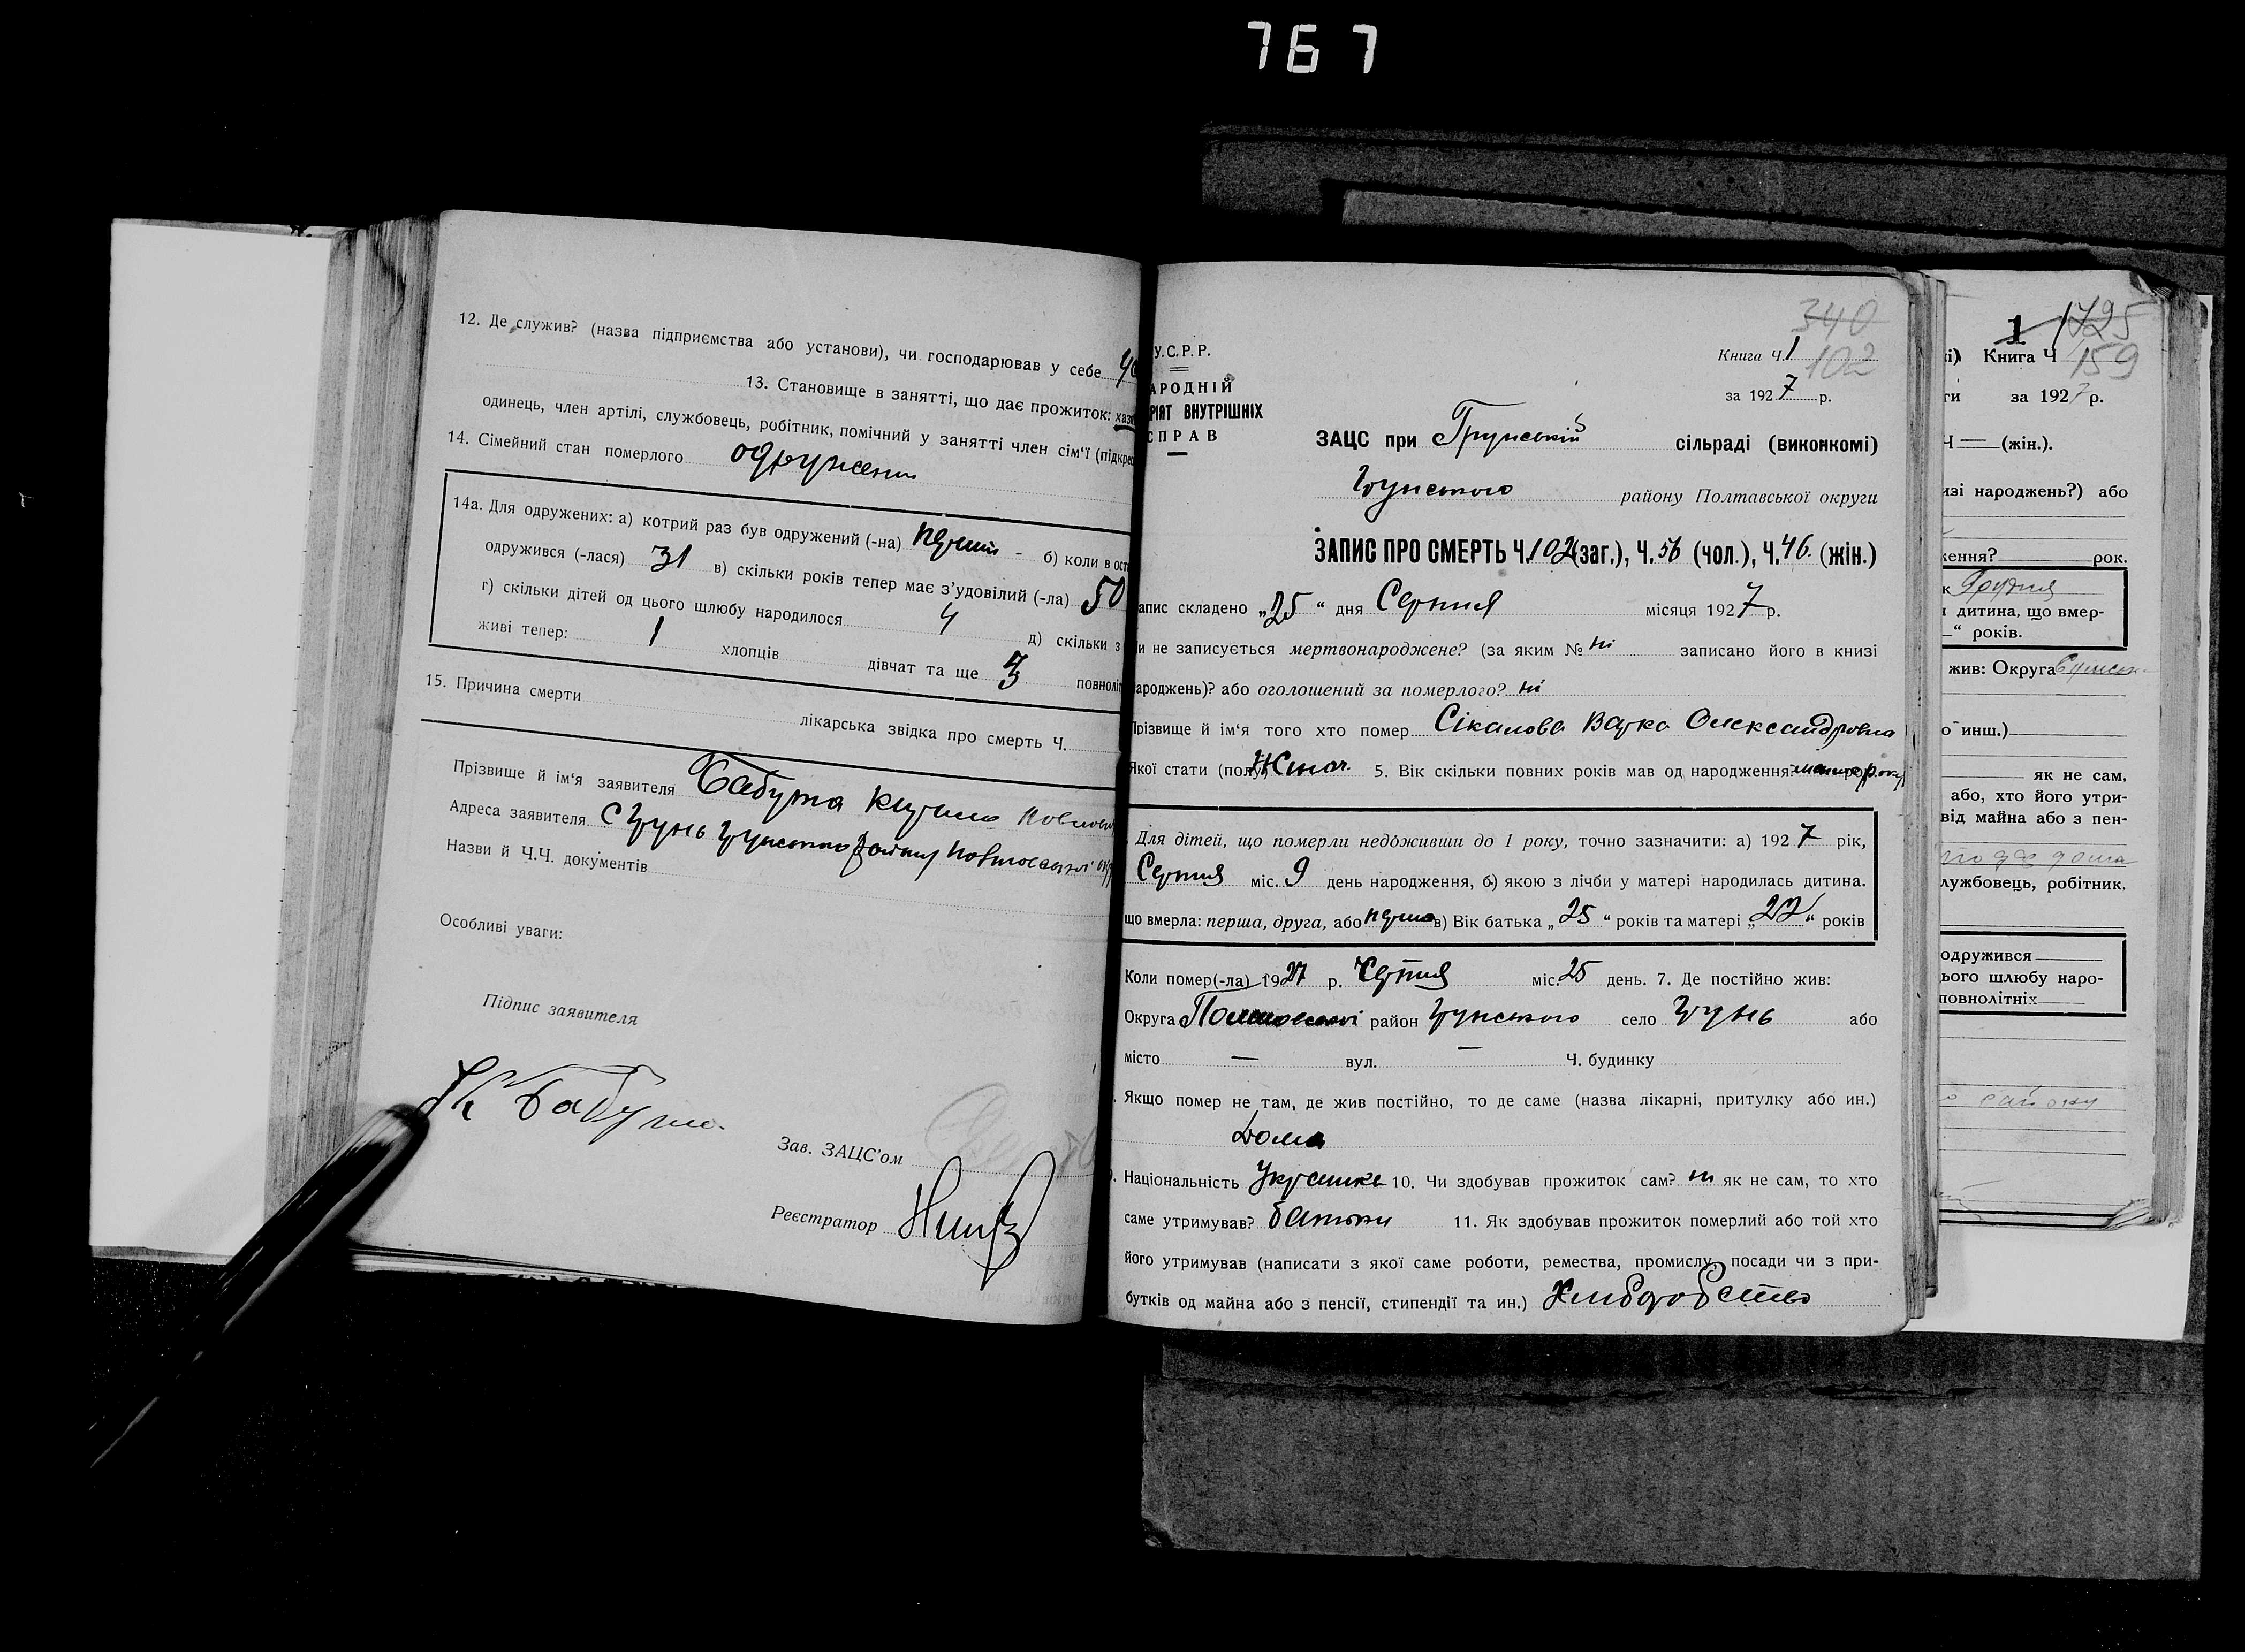 767
12. Де служив? (назва підприємства або установи), чи господарював у себе
13. Становище в занятті, що дає прожиток: хазя
одинець, член артілі, службовець, робітник, помічний у занятті член сім'ї (підкрес
14. Сімейний стан померлого одружени
14а. Для одружених: а) котрий раз був одружений (-на) перший - б) коли в ост
одружився (-лася) 31 в) скільки років тепер має з'удовілий (-ла) 50
г) скільки дітей од цього щлюбу народилося 4 д) скільки з
живі тепер: 1 хлопців дівчат та ще 3 повноліт
15. Причина смерти
лікарська звідка про смерть Ч.
Прізвище й ім'я заявителя Бабута Кирило Павлови
Адреса заявителя с Грунь Грунського району Полтавської окр
Назви й Ч.Ч. документів
Особливі уваги:
Підпис заявителя
К Бабута
Зав. ЗАЦС'ом
Реєстратор
У.С.Р.Р.
АРОДНІЙ
РІЯТ ВНУТРІШНІХ
СПРАВ
340
Книга Ч. 1 102
за 1927 р.
ЗАЦС при Грунській сільраді (виконкомі)
Грунського району Полтавської округи
ЗАПИС ПРО СМЕРТЬ Ч. 102 (заг.), Ч. 56 (чол.), Ч. 46. (жін.)
апис складено „25“ дня Серпня місяця 1927 р.
и не записується мертвонароджене? (за яким № ні записано його в книзі
ароджень)? або оголошений за померлого? ні
Прізвище й ім'я того хто помер Сікалова Варка Олександровна
Якої стати (полу) Жіноч. 5. Вік скільки повних років мав од народження? року
Для дітей, що померли недоживши до 1 року, точно зазначити: а) 1927 рік,
Серпня міс. 9 день народження, б) якою з лічби у матері народилась дитина.
що вмерла: перша, друга, або перша в) Вік батька „25“ років та матері „22“ років
Коли помер(-ла) 1927 р. Серпня міс. 25 день. 7. Де постійно жив:
Округа Полтавської район Грунського село Грунь або
місто — вул. — Ч. будинку
Якщо помер не там, де жив постійно, то де саме (назва лікарні, притулку або ин.)
Дома
Національність Українка 10. Чи здобував прожиток сам? ні як не сам, то хто
саме утримував? батьки 11. Як здобував прожиток померлий або той хто
його утримував (написати з якої саме роботи, ремества, промислу, посади чи з при-
бутків од майна або з пенсії, стипендії та ин.) Хліборобство
1 1725
і) Книга Ч 159
ги за 1927 р.
Ч — (жін.).
изі народжень?) або
ження? рок.
к Грудня
дитина, що вмер-
—“ років.
жив: Округа Сумськ
о инш.)
як не сам,
або, хто його утри-
від майна або з пен-
лужбовець, робітник,
одружився
ього шлюбу наро-
повнолітніх
району